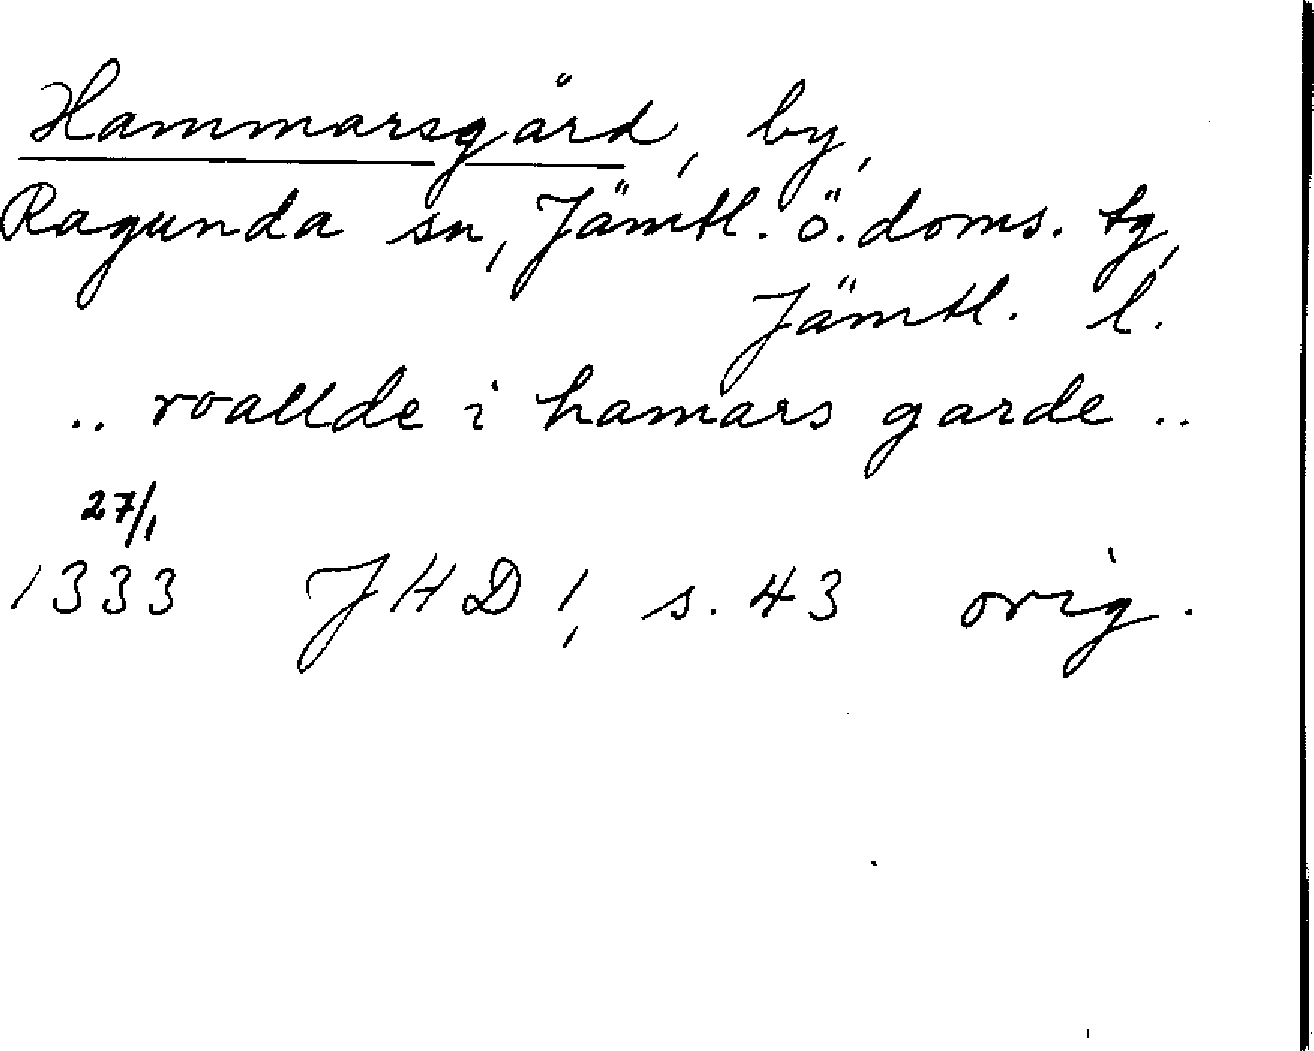 Hammarsgård, by,
Ragunda sn, Jämtl. ö. doms. tg,
Jämtl. l.
.. roallde i hamars garde ..
27/1
1333 JHD 1, s. 43 orig.